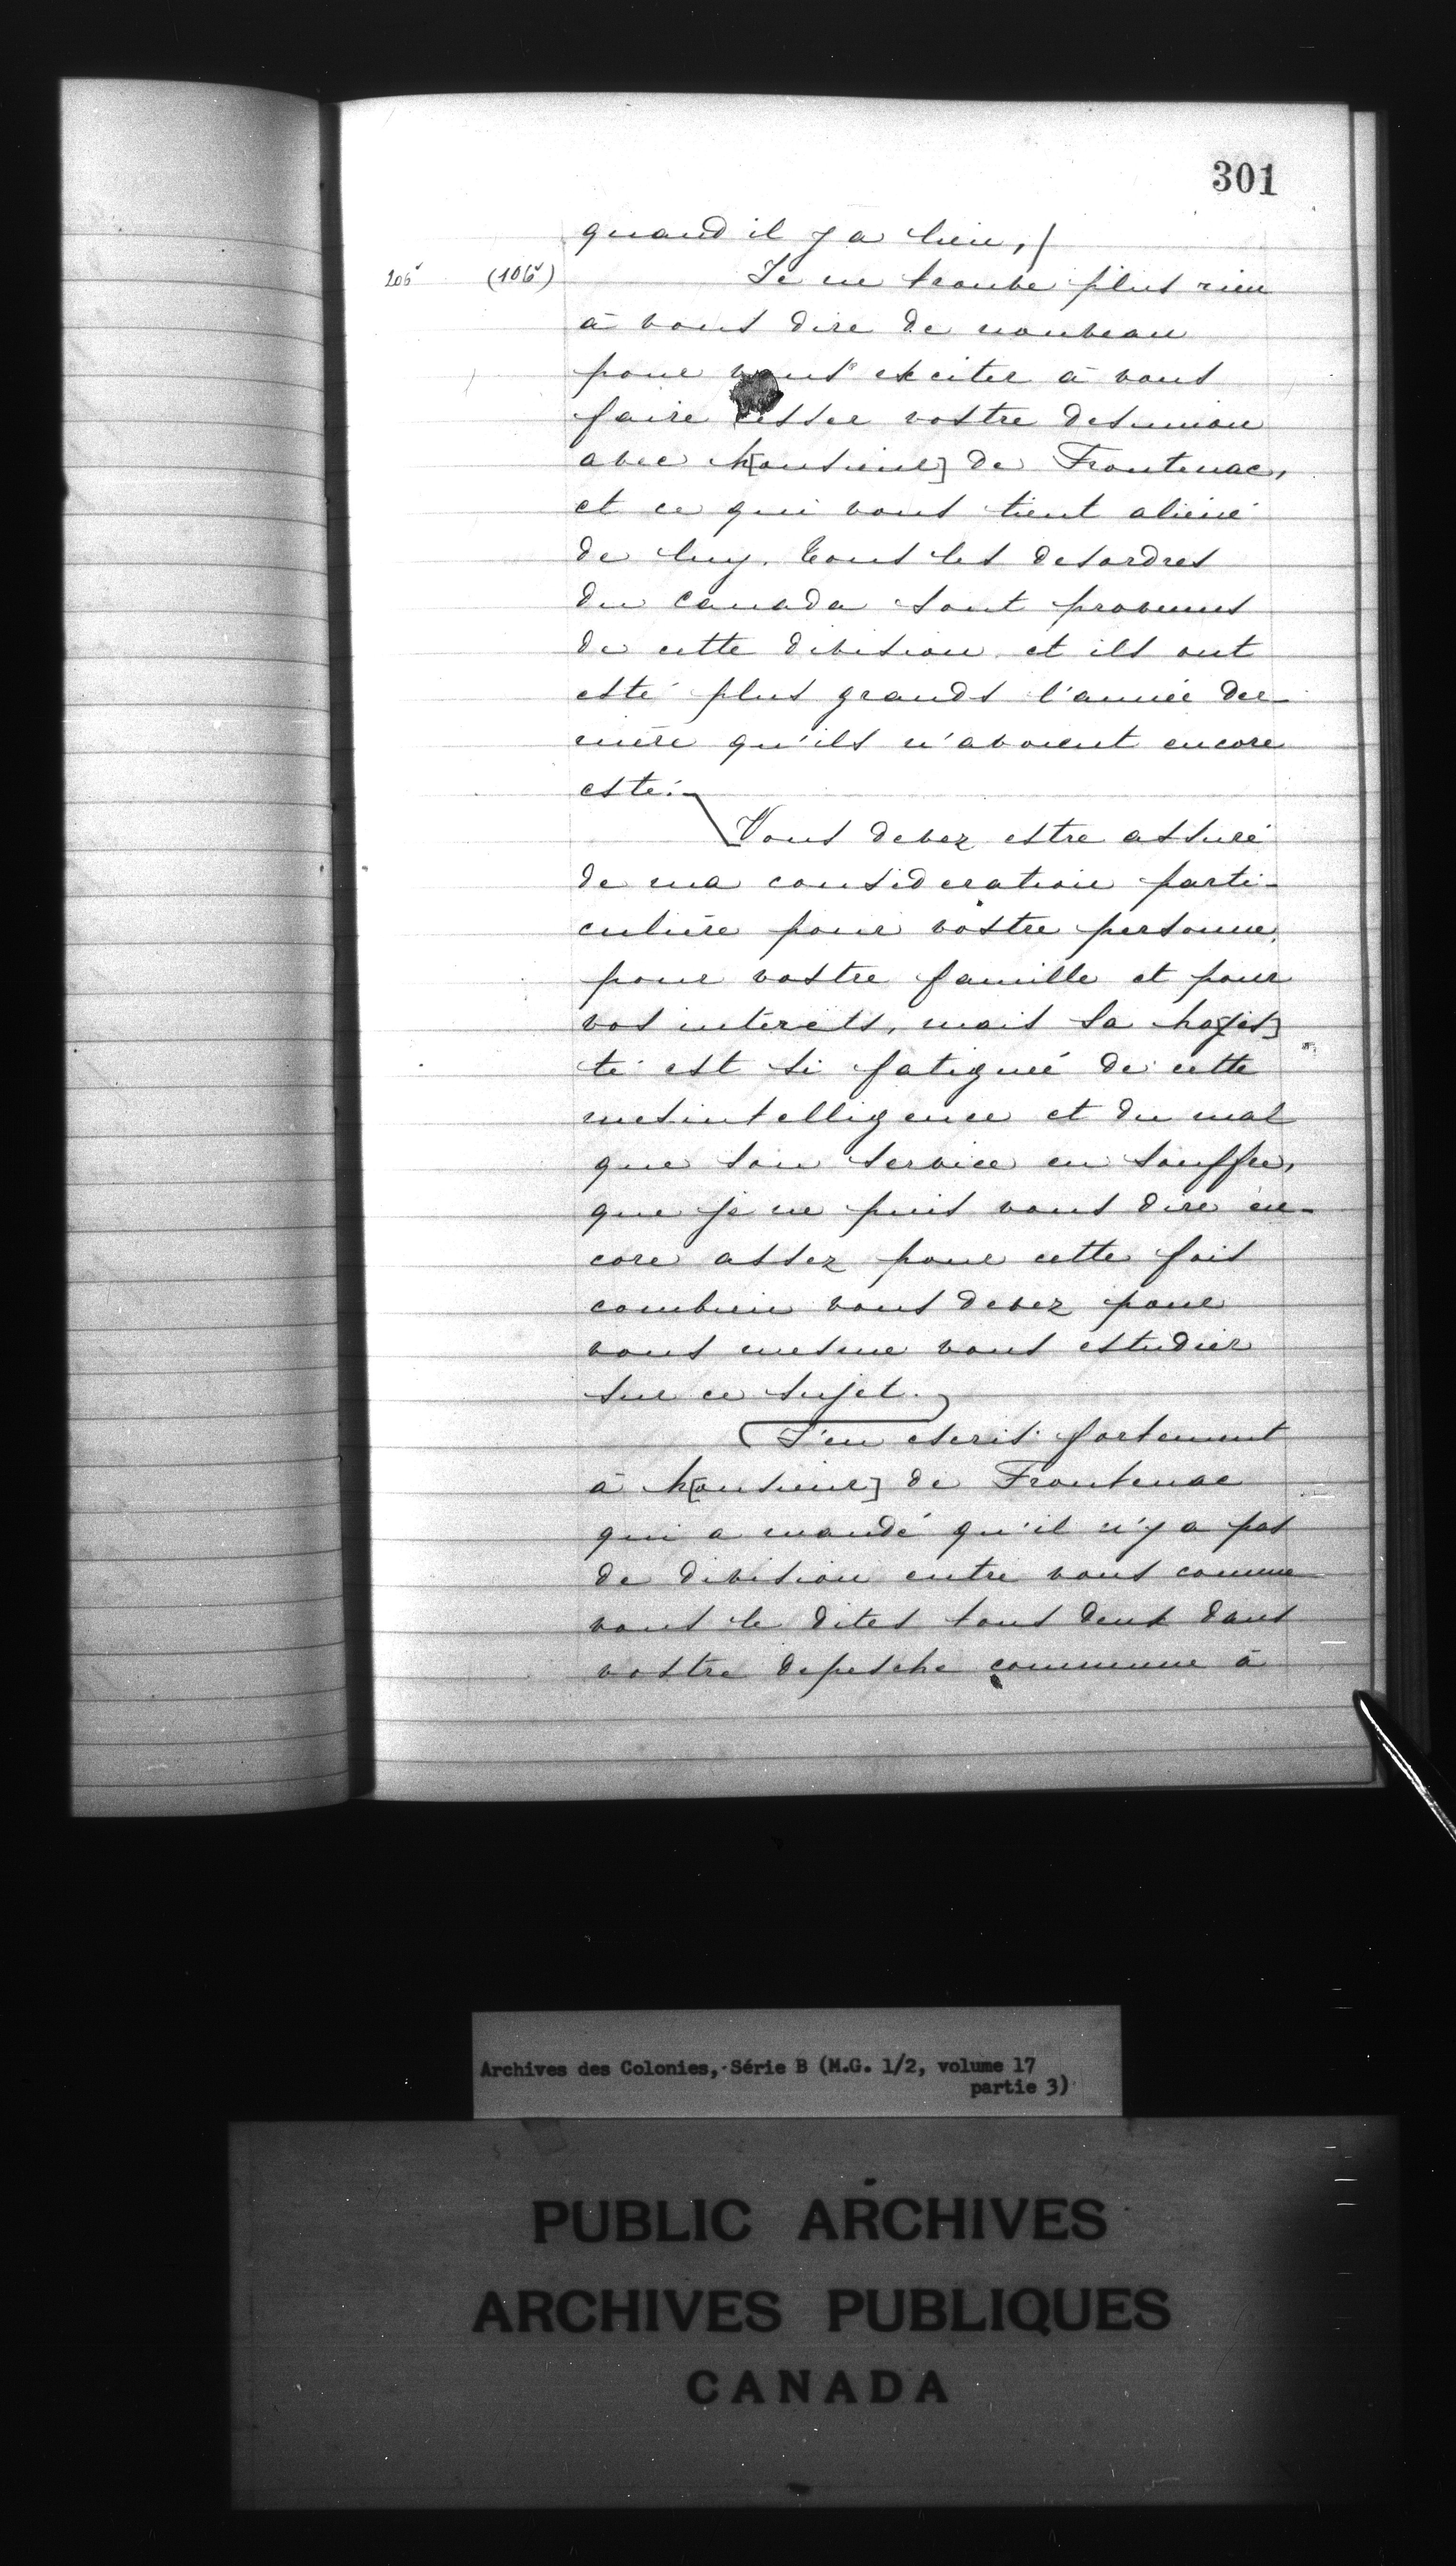 301
quand il y a lieu,/
206v (106v) Je ne trouve plus rien
à vous dire de nouveau
pour vous exciter à vous
faire cesser vostre desunion
avec M[onsieur] de Frontenac,
et ce qui vous tient aliéné
de luy. Tous les desordres
du Canada sont provenus
de cette division et ils ont
esté plus grands l'année der-
nière qu'ils n'avoient encore
esté.
Vous devez estre assuré
de ma consideration parti-
culière pour vostre personne,
pour vostre famille et pour
vos interets, mais Sa Ma[jes]
té est si fatiguée de cette
mesintelligence et du mal
que son service en souffre,
que je ne puis vous dire en-
core assez pour cette fois
combien vous devez pour
vous mesme vous estudier
sur ce sujet.
J'en escris fortement
à M[onsieur] de Frontenac
qui a mandé qu'il n'y a pas
de division entre vous comme
vous le dites tous deux dans
vostre depesche commune à
Archives des Colonies, Série B (M.G. 1/2, volume 17
partie 3)
PUBLIC ARCHIVES
ARCHIVES PUBLIQUES
CANADA